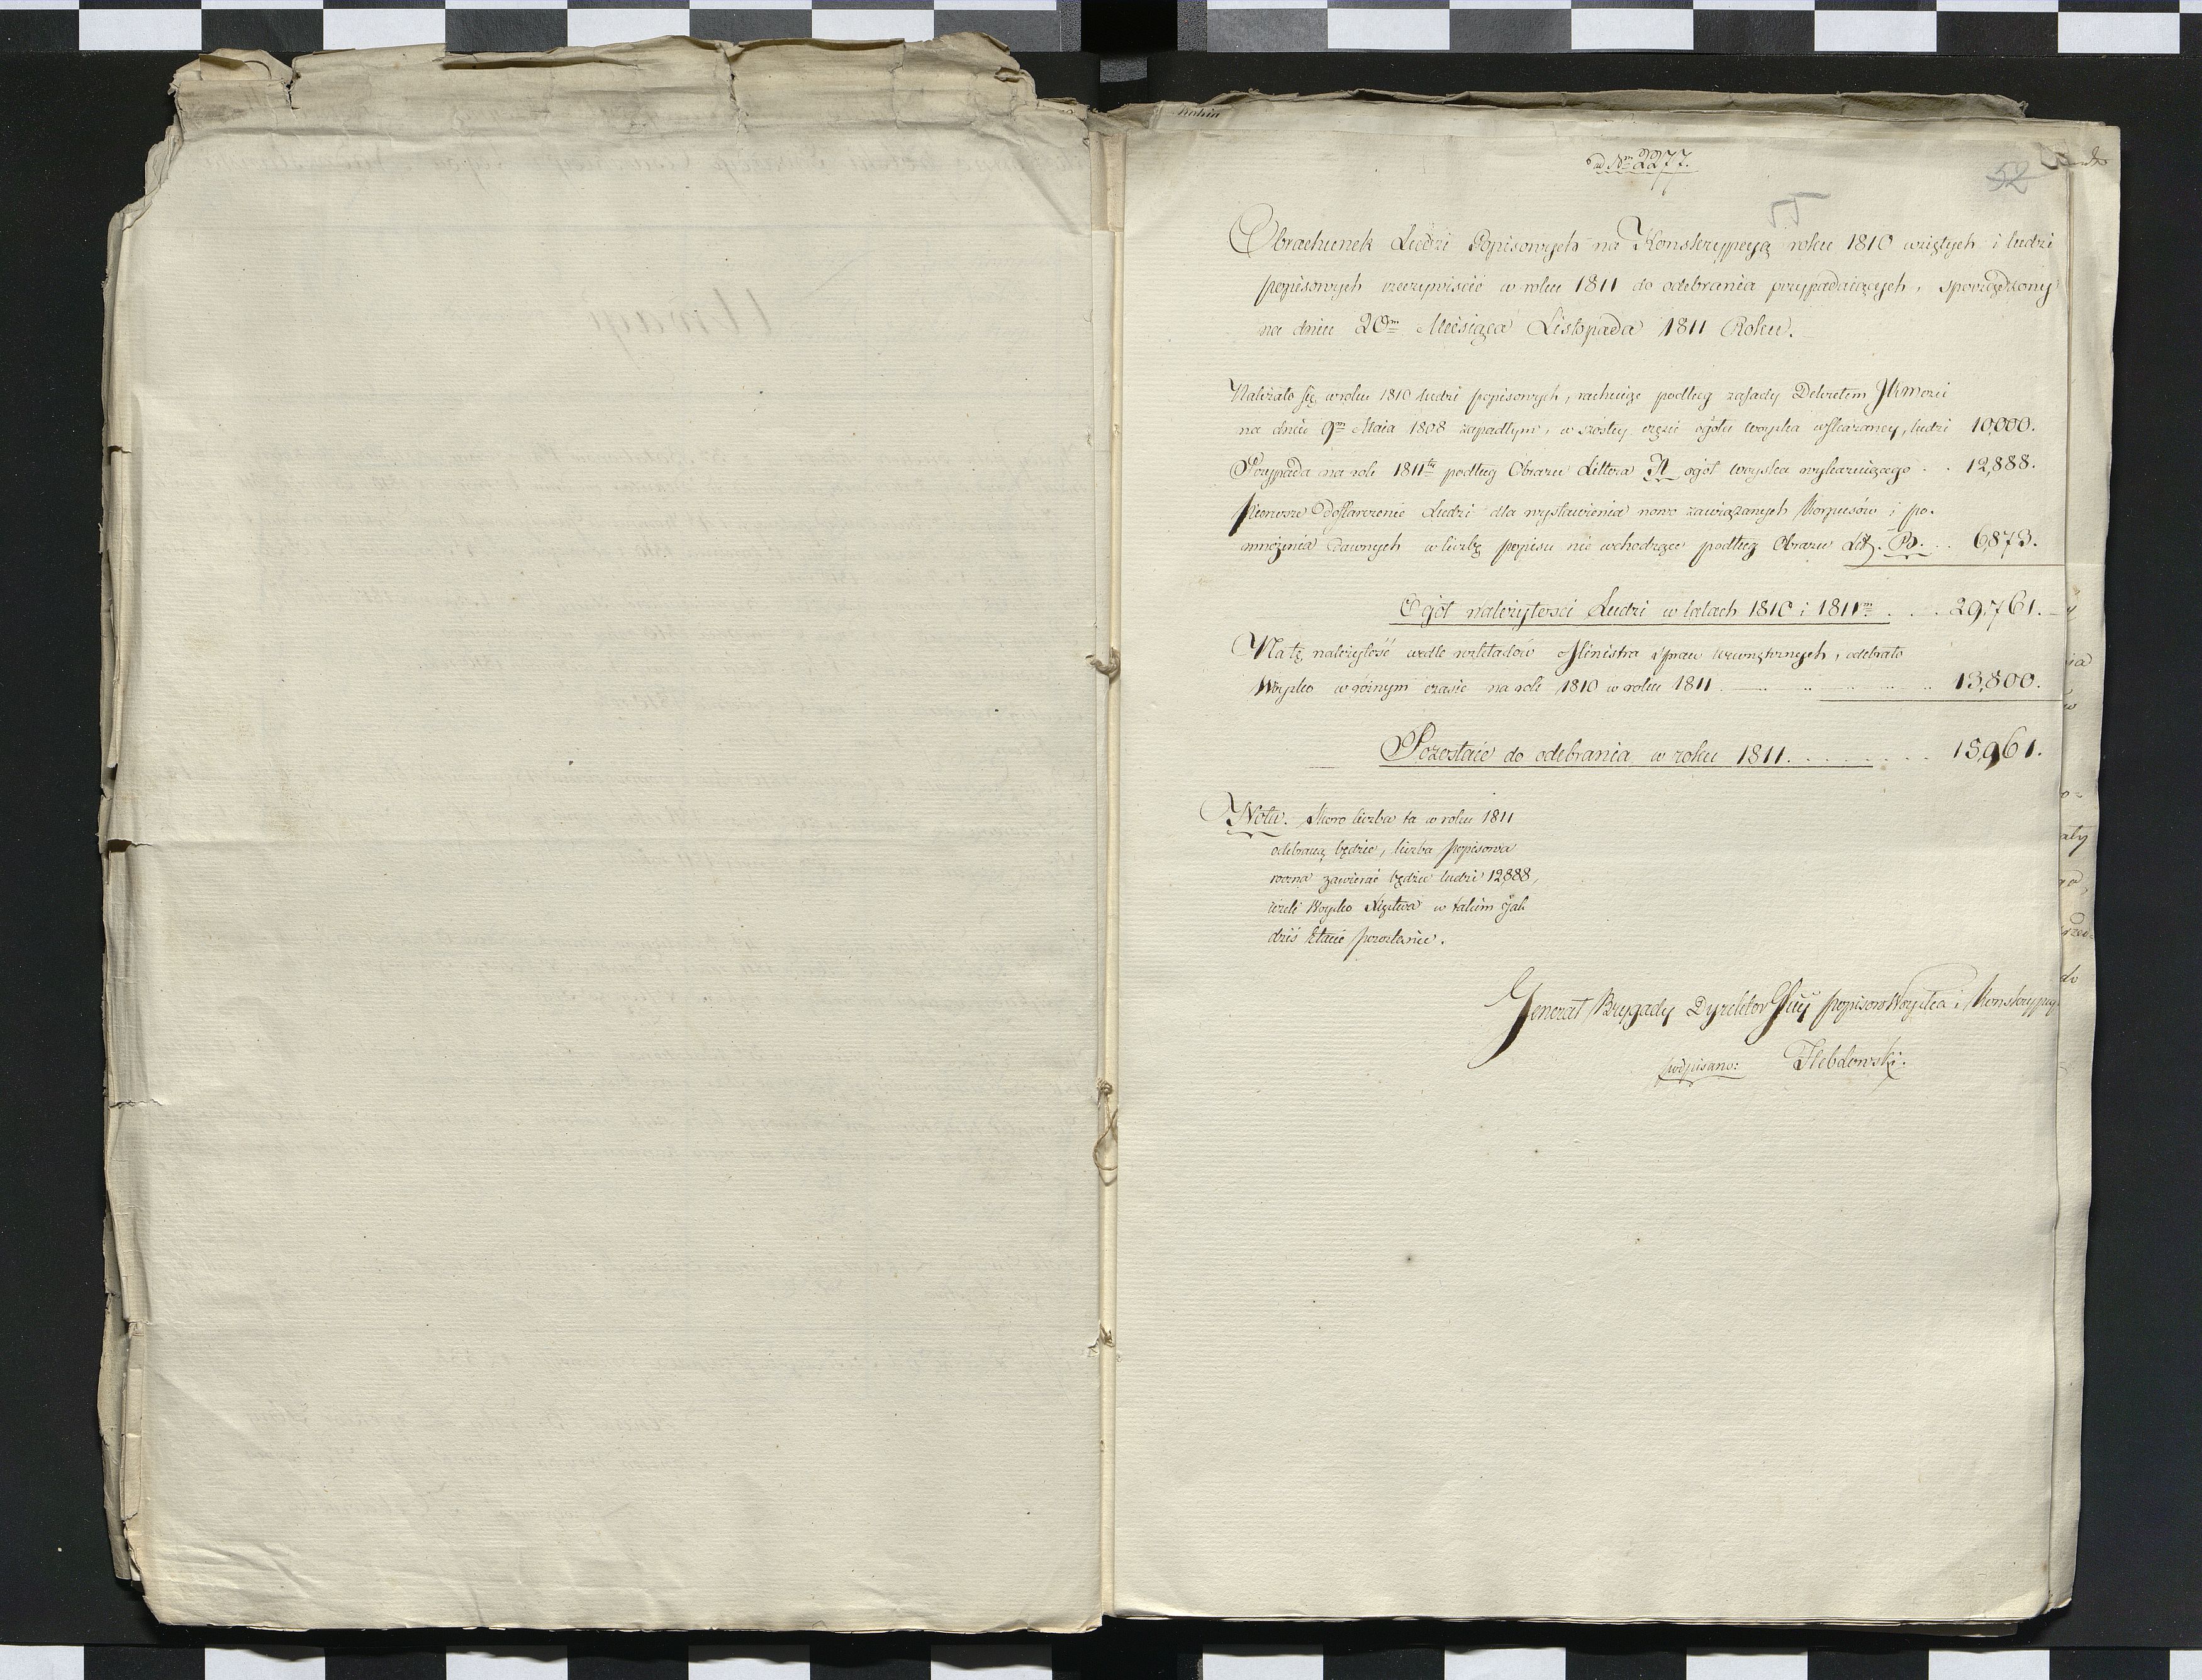 ad Nrm 2277.
52
55
Obrachunek Ludzi Popisowych na Konskrypcyą roku 1810 wziętych i ludzi
popisowych rzeczywiście w roku 1811 do odebrania przypadaiących, sporządzony
na dniu 20m Miesiąca Listopada 1811 Roku.
Należało się w roku 1810 ludzi popisowych, rachuiąc podług zasady Dekretem JKMości
na dniu 9m Maia 1808 zapadłym, w szóstey części ogółu woyska wskazaney, ludzi 10,000.
Przypada na rok 1811ty podług Obrazu Littera A ogół woyska wykazuiącego . . 12,888.
Pierwsze Dostarczenie Ludzi dla wystawienia nowo zawiązanych Korpusów i po-
mnożenia dawnych w liczbę popisu nie wchodzące podług Obrazu Lit. B. . . 6,873.
Ogół należytości Ludzi w latach 1810 i 1811m . . . 29,761.
Na tę należytość wedle rozkładów Ministra spraw wewnętrznych, odebrało
Woysko w róznym czasie na rok 1810 w roku 1811 . . . . . 13,800.
Pozostaie do odebrania w roku 1811. . . . . . . . 15,961.
Nota. Skoro liczba ta w roku 1811
odebraną będzie, liczba popisowa
roczna zawierać będzie ludzi 12,888,
ieżeli Woysko Xięstwa w takim jak
dziś Etacie pozostanie.
Generał Brygady Dyrektor Głny popisow Woyska i Konskrypcyi
podpisano: Hebdowski.